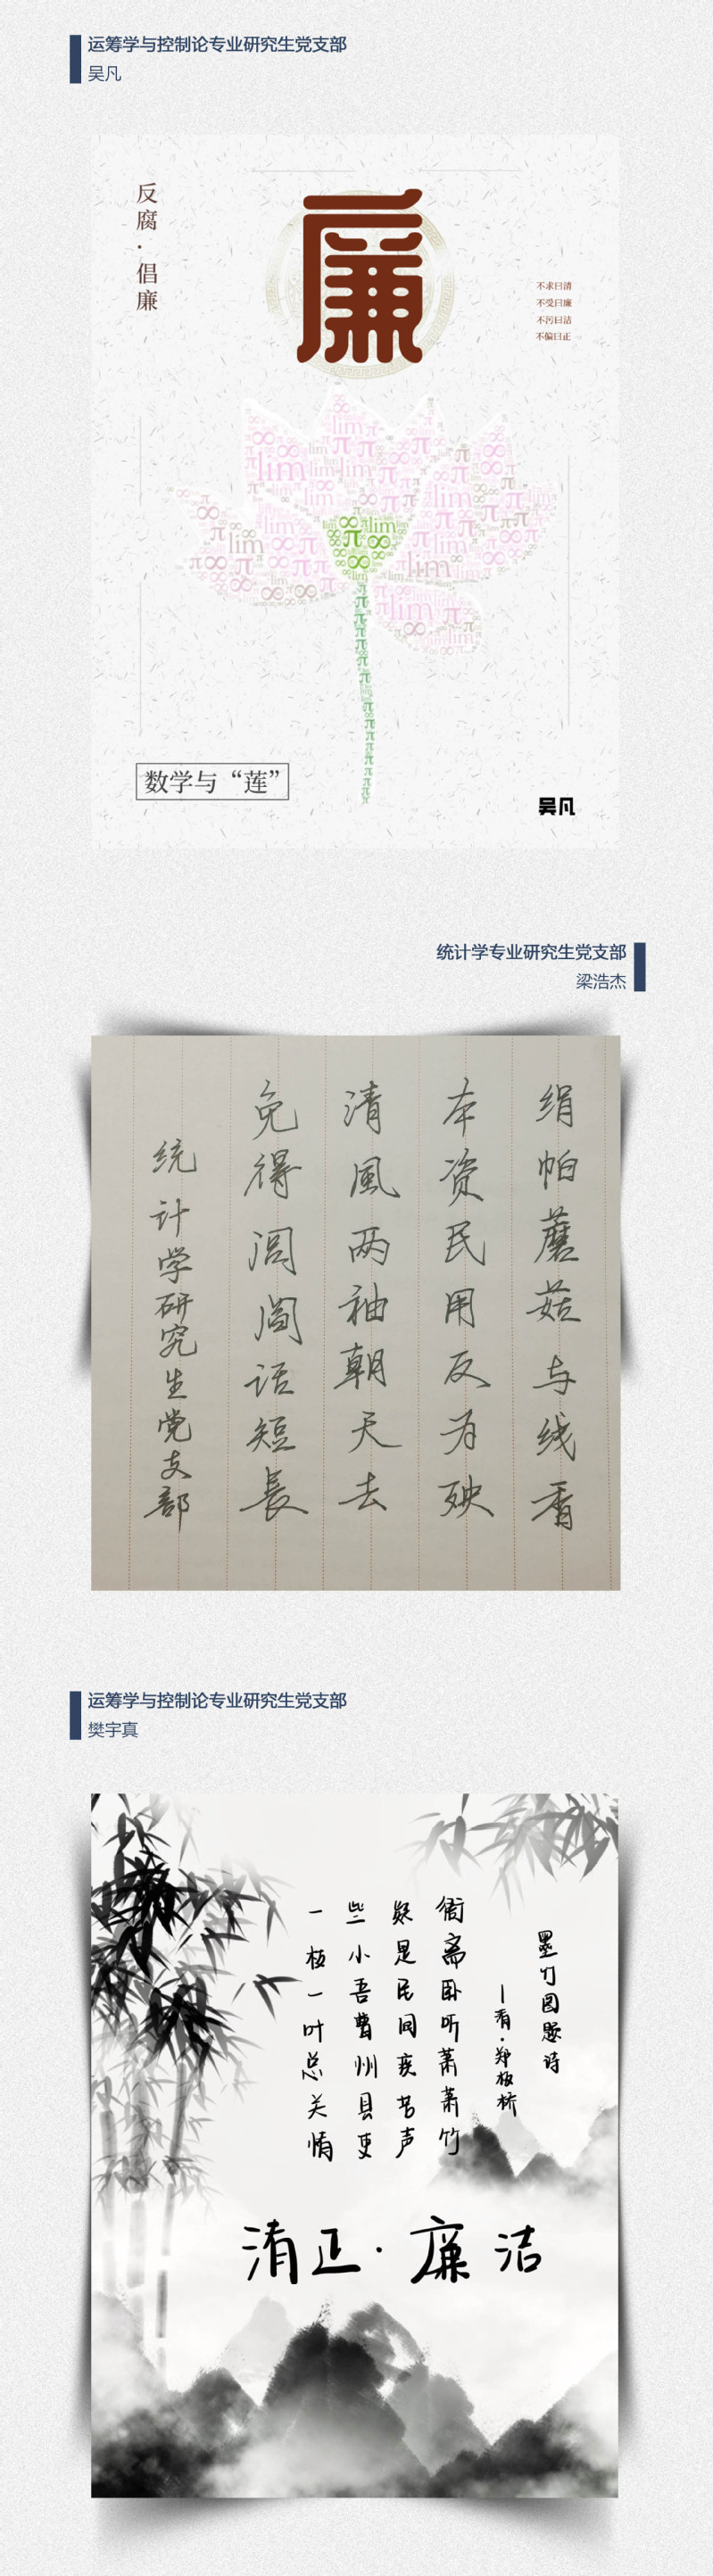 运筹学与控制论专业研究生党支部
吴凡
反腐·倡廉
廉
不求曰清
不受曰廉
不污曰洁
不偏曰正
数学与“莲”
吴凡
统计学专业研究生党支部
梁浩杰
绢帕蘑菇与线香
本资民用反为殃
清風两袖朝天去
免得闾阎话短長
统计学研究生党支部
运筹学与控制论专业研究生党支部
樊宇真
墨竹图题诗
—清·郑板桥
衙斋卧听萧萧竹
疑是民间疾苦声
些小吾曹州县吏
一枝一叶总关情
清正·廉洁